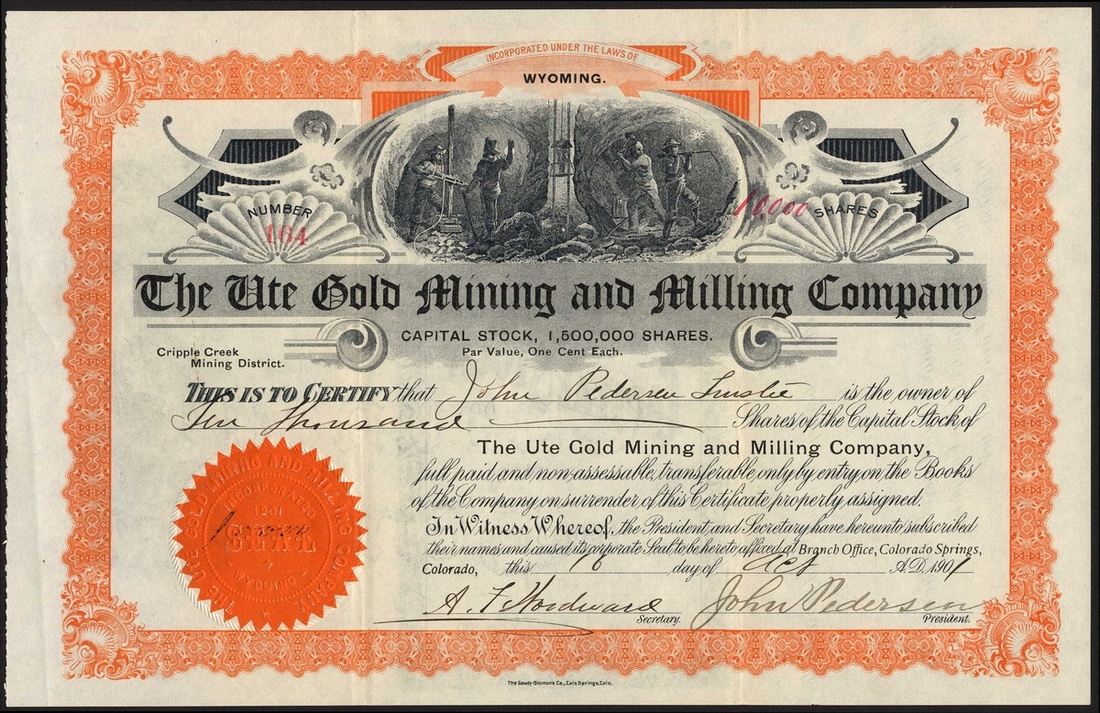 INCORPORATED UNDER THE LAWS OF
WYOMING.
NUMBER
164
10,000 SHARES
The Ute Gold Mining and Milling Company
CAPITAL STOCK, 1,500,000 SHARES.
Par Value, One Cent Each.
Cripple Creek
Mining District.
THIS IS TO CERTIFY that John Pedersen Trustee is the owner of
Ten Thousand Shares of the Capital Stock of
The Ute Gold Mining and Milling Company,
full paid and non-assessable, transferable only by entry on the Books
of the Company on surrender of this Certificate properly assigned.
In Witness Whereof, the President and Secretary have hereunto subscribed
their names and caused its corporate Seal to be hereto affixed at Branch Office, Colorado Springs,
Colorado, this day of Oct A.D. 1901
A. F. Woodward
Secretary.
John Pedersen
President.
THE UTE GOLD MINING AND MILLING COMPANY
INCORPORATED
1901
SEAL
WYOMING
The Gowdy-Simmons Co., Colo. Springs, Colo.